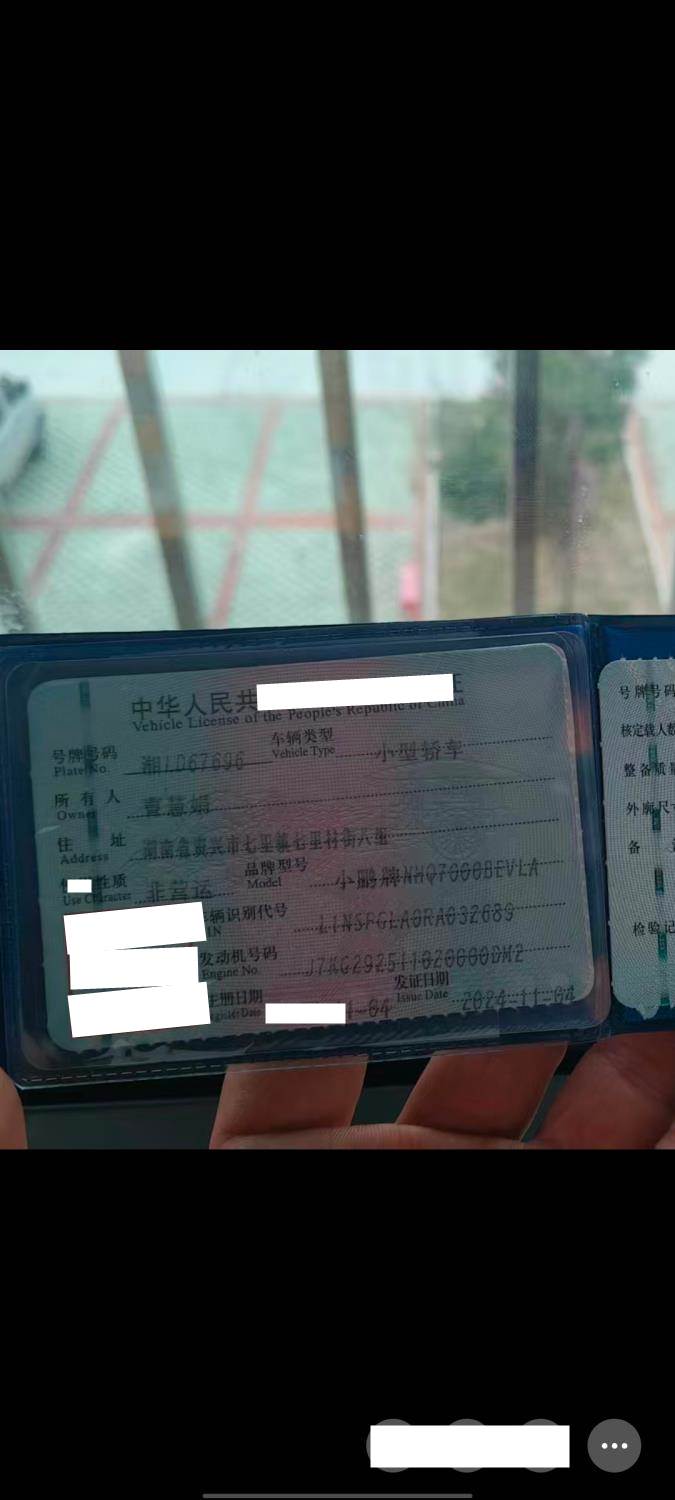 中华人民共
Vehicle License of the People's Republic of China
号牌号码 Plate No. 湘LD67696 车辆类型 Vehicle Type 小型轿车
所有人 Owner
住址 Address 湖南省资兴市七里镇七里村街八组
性质 Use Character 非营运 品牌型号 Model 小鹏牌NHQ7000BEVLA
辆识别代号 IN L1NSPGLA0RA032689
发动机号码 Engine No.
册日期 Register Date 1-04 发证日期 Issue Date 2024-11-04
号牌号码
核定载人数
整备质量
外廓尺寸
备
检验记